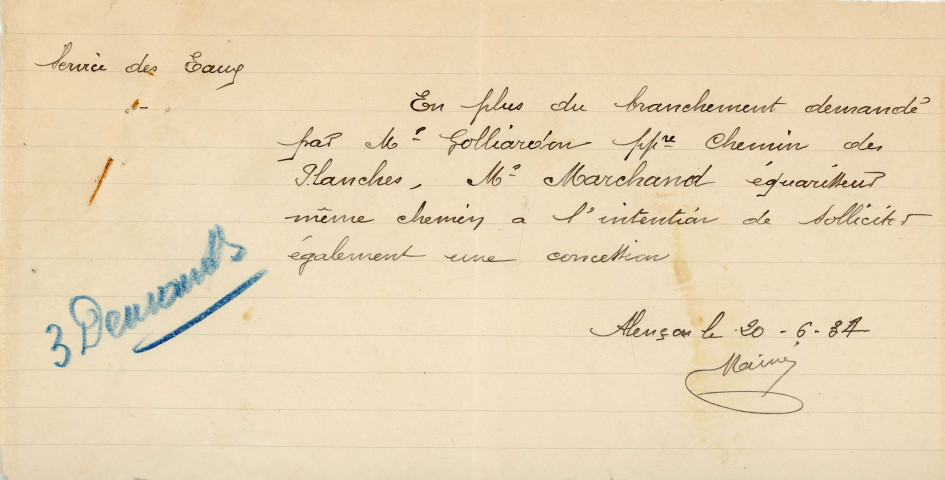 Service des Eaux
-
En plus du branchement demandé
par Mr Golliardon ppre chemin des
Planches, Mr Marchand équarisseur
même chemin a l'intention de solliciter
également une concession
3 Demandes
Alençon le 20-6-34